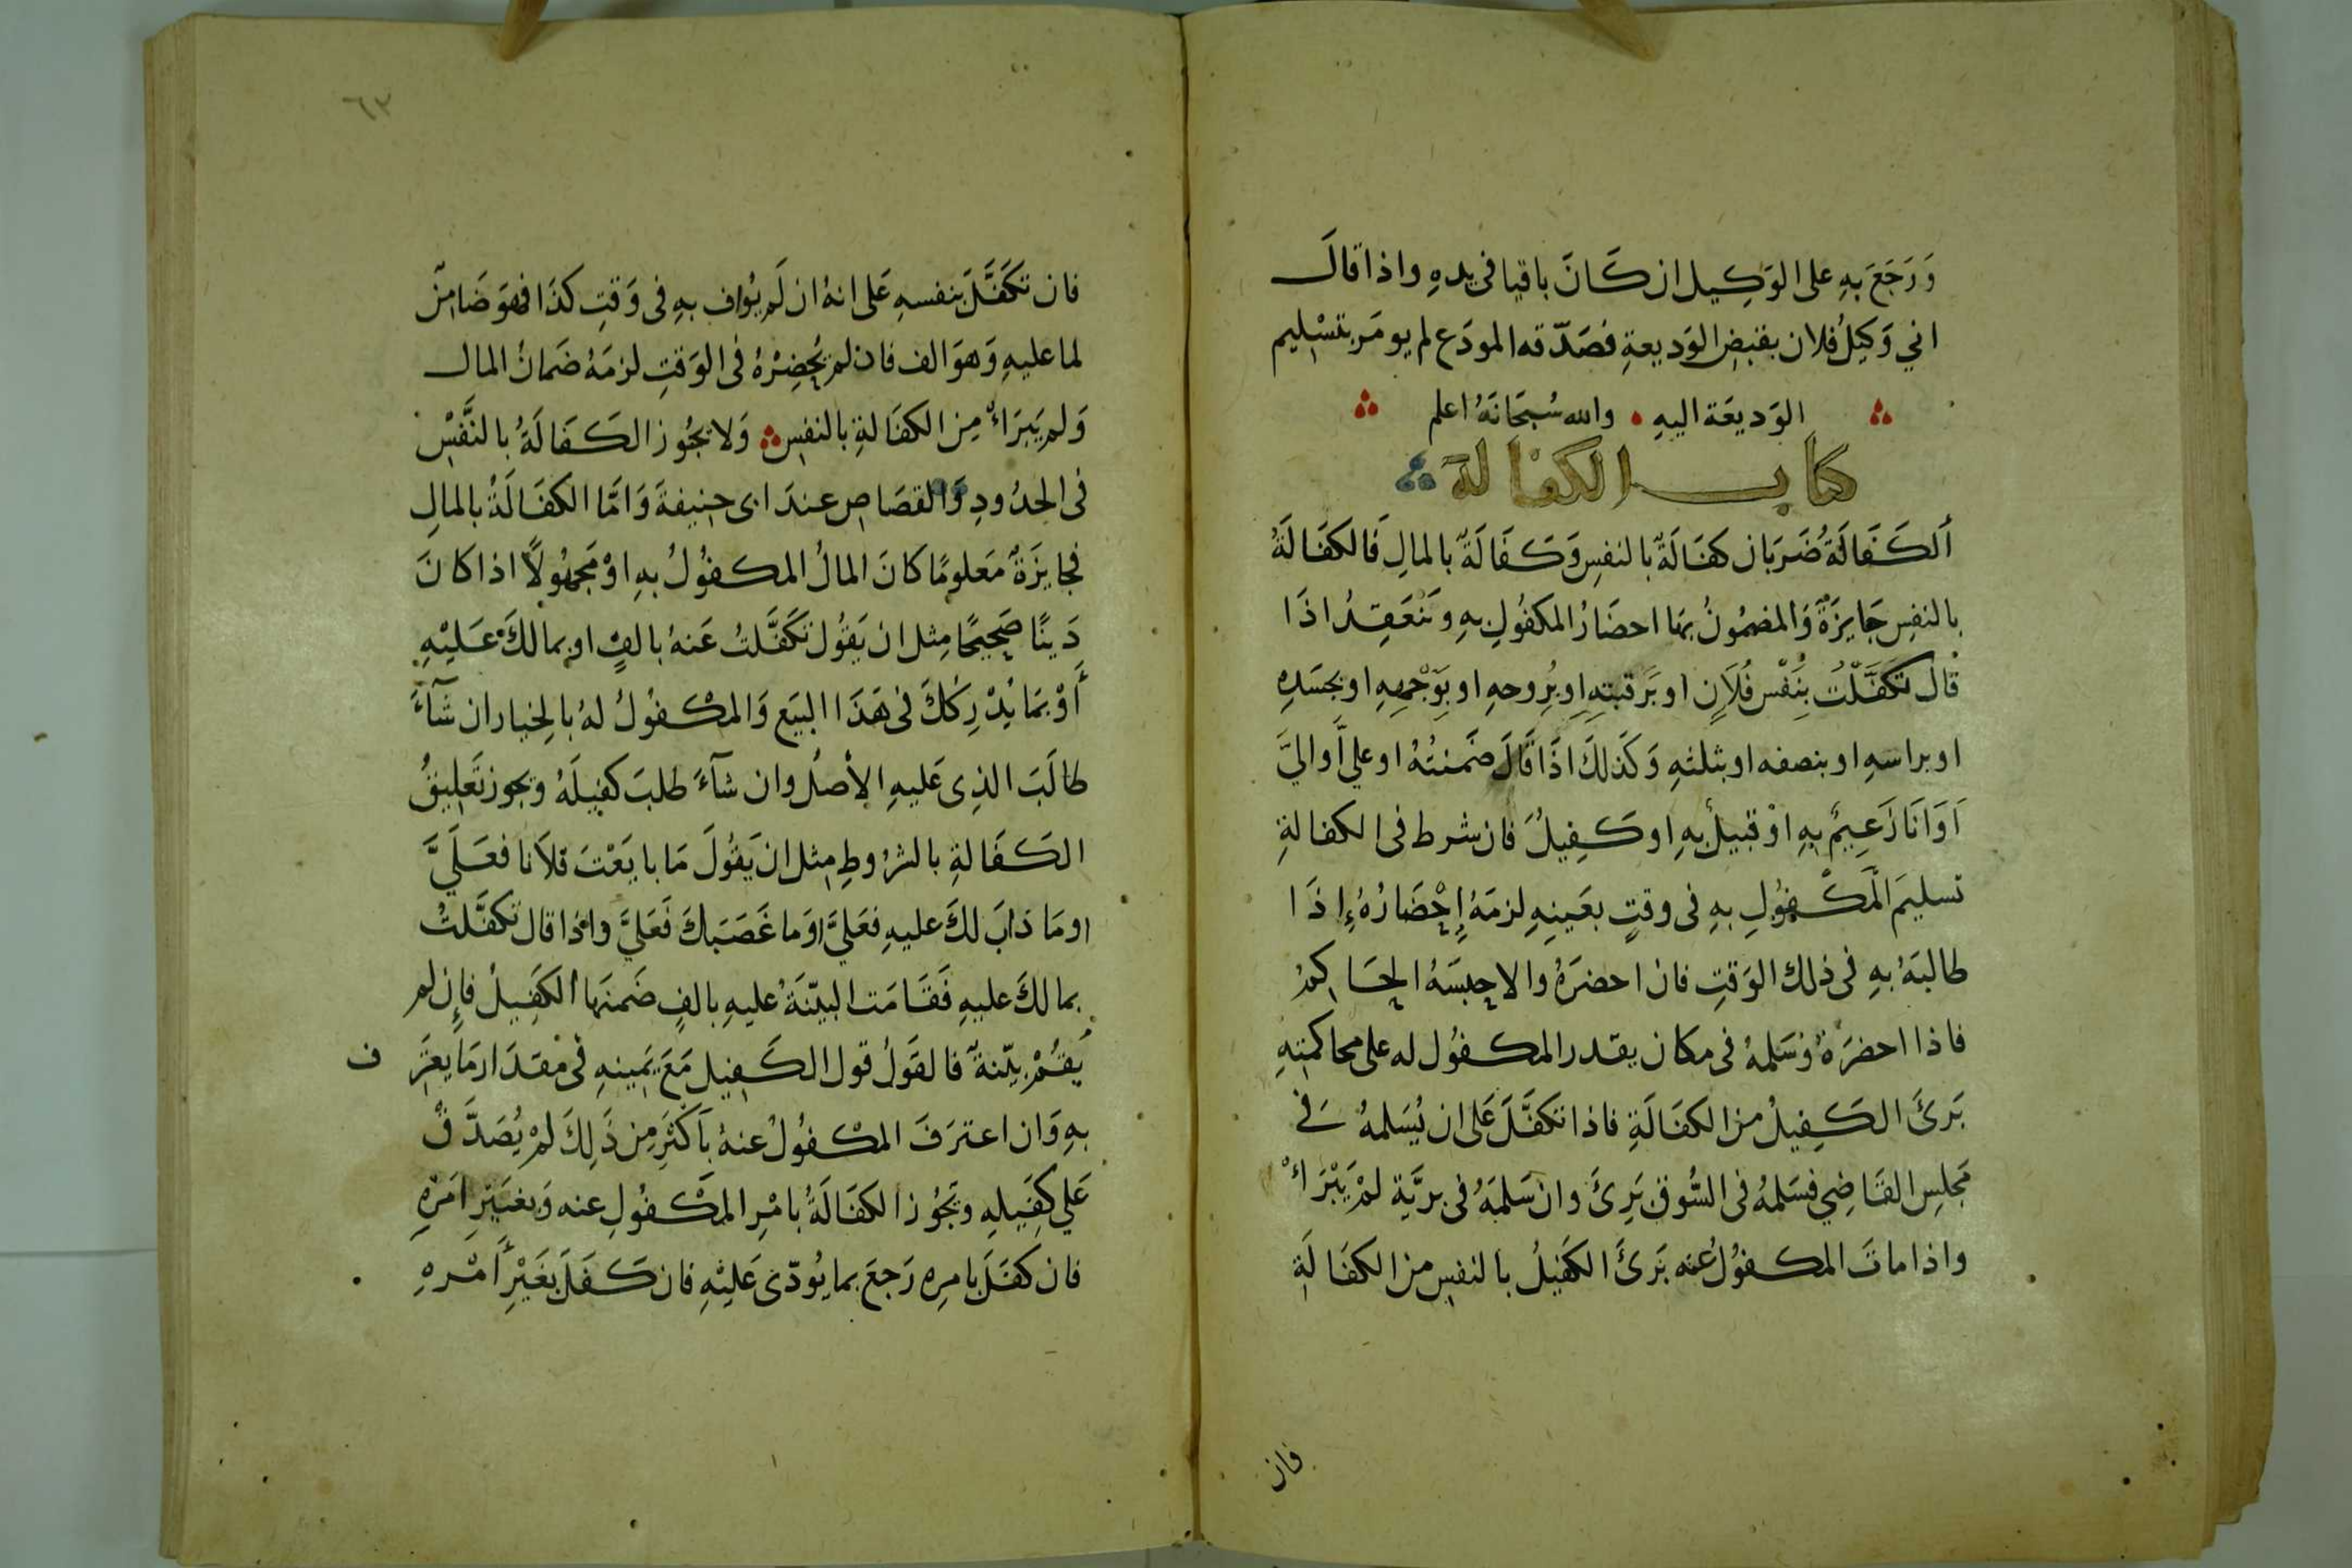 وَرَجَعَ بهِ على الوَكِيل ان كَانَ باقيا فى يدهِ واذا قالَ
اني وَكيلُ فلان بقبض الوَديعةِ فصَدّقه المودَع لم يومَر بتسْليم
الوَديعَة اليهِ والله سُبحَانَهُ اعلم
كتاب الكفالة
ألكَفَالَةُ ضَربَان كفَالَةٌ بالنفسِ وَكَفَالَةٌ بالمالِ فَالكفَالَةُ
بالنفسِ جَايزَةٌ وَالمضمُونُ بهَا احضَارُ المكفُولِ بهِ وتَنْعَقِدُ اذَا
قال تكَفَّلْتُ بِنَفْسِ فُلَانٍ او بَرقبتهِ او بُروحهِ او بوَجْههِ او بجسَدِهِ
او براسهِ او بنصفه او بثلثهِ وَكَذلكَ اذَا قَالَ ضَمنتُهُ او علىَّ اَو اليَّ
اَوَانَا زَعِيمٌ بهِ اوْ قبيلٌ بهِ او كَفِيلٌ فان شرط فى الكفالةِ
تسليمَ المَكْفُولِ بهِ فى وقتٍ بعَينِهِ لزمَهُ إحْضَارُهُ إذَا
طالبَهُ بهِ فى ذلك الوَقتِ فان احضرَهُ والا حبسَهُ الحَاكمُ
فاذا احضرَهُ وَسَلمهُ فى مكان يقدر المكفُول له على محاكمتهِ
بَرئَ الكَفِيلُ من الكفَالَةِ فاذا تكَفَّلَ عَلى ان يُسَلمهُ فى
مَجلسِ القَاضِي فسَلمهُ فى السُّوق بَرِئَ وان سَلمَهُ فى بريَّة لمْ يَبْرَاْ
واذا ماتَ المكفُولُ عنه بَرئَ الكَفيلُ بالنفسِ من الكفَالَةِ
فان
٦٣
فان تكَفَّلَ بنفسهِ عَلى انهُ ان لَم يُوافِ بهِ فى وَقتِ كذَا فهوَ ضَامنٌ
لما عليهِ وَهوَ الف فان لم يُحْضِرْهُ فى الوَقتِ لزمَهُ ضَمانُ المال
وَلم يَبَراْ مِن الكفَالةِ بالنفسِ وَلا تجُوز الكَفالَةُ بالنَّفسِْ
فى الحدُودِ وَالقصَاص عندَ ابى حنيفةَ وَامَّا الكفَالَةُ بالمالِ
فجايزَةٌ مَعلومًا كانَ المالُ المكفُولُ بهِ اوْ مَجهُولاً اذا كانَ
دَينًا صَحِيحًا مِثل ان يَقُول تكَفَّلتُ عَنهُ بالفٍ او بمالكَ عَلَيْهِ
أَوْ بمَا يُدْرِكُكَ فى هَذَا البيَع وَالمكْفُولُ لهُ بالخِيار ان شَآءَ
طالَبَ الذِى عَليهِ الأصلُ وان شآءَ طلبَ كفيلَهُ وتجوز تَعليقُ
الكَفَالةِ بالشرُوطِ مِثل ان يَقُولَ مَا بايَعْتَ فلَانا فعَلَيَّ
اومَا ذابَ لكَ عليهِ فعَليَّ اوَما غَصَبَكَ فَعَليَّ واذا قال تكفَّلتُ
بمالكَ عليهِ فَقَامَت البيّنَةُ عليهِ بالفٍ ضَمنهَا الكَفِيلُ فإن لم
يَقُمْ بيّنةٌ فالقَولُ قول الكَفيل مَعَ يَمينهِ فى مقدَار مَا يعتَرف
بهِ وَان اعترَفَ المكْفُولُ عنهُ بأكثَرِ مِن ذَلِكَ لمْ يُصَدَّقْ
عَلي كفِيلهِ وتَجُوز الكفَالَةُ بامْرِ المَكْفُولِ عنه وَبغيَرِ امَرْهِ
فان كفَلَ بامرِهِ رَجعَ بما يُودّى عَليْهِ فان كَفَلَ بغَيْرِ أَمْرهِ